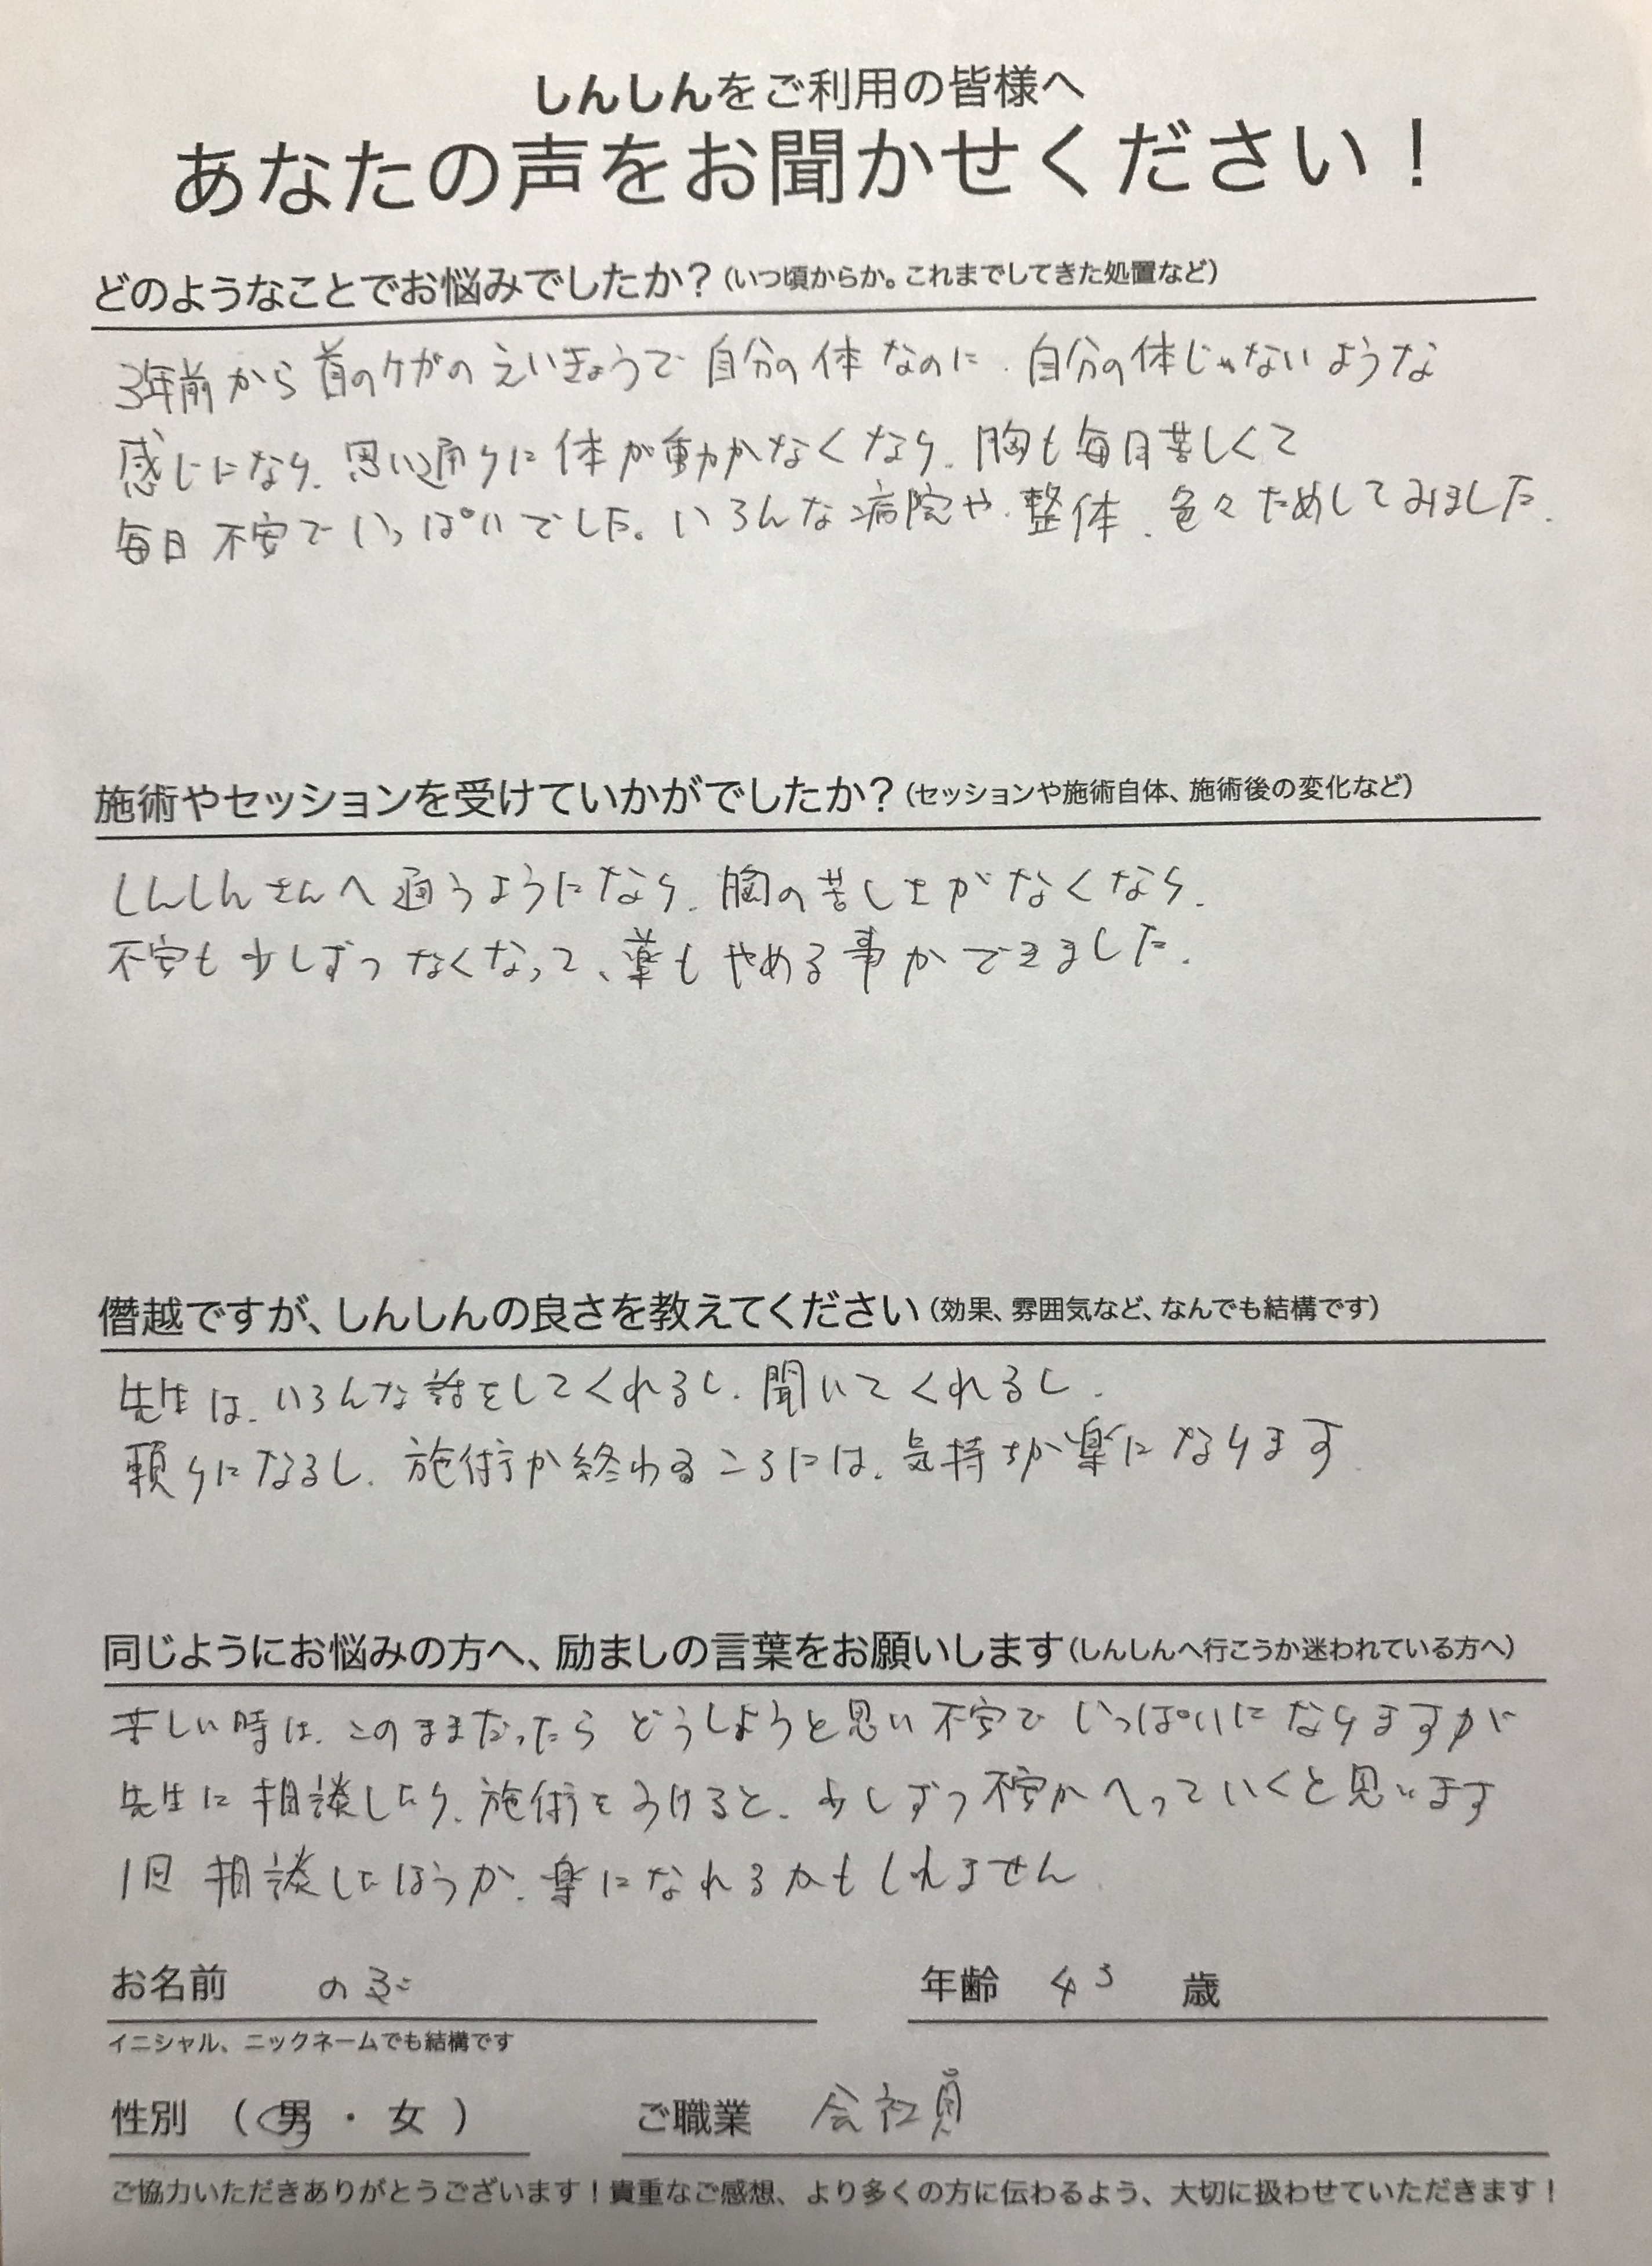 しんしんをご利用の皆様へ
あなたの声をお聞かせください！
どのようなことでお悩みでしたか？（いつ頃からか。これまでしてきた処置など）
3年前から首のケガのえいきょうで自分の体なのに、自分の体じゃないような
感じになり、思い通りに体が動かなくなり、胸も毎日苦しくて
毎日不安でいっぱいでした。いろんな病院や、整体、色々ためしてみました。
施術やセッションを受けていかがでしたか？（セッションや施術自体、施術後の変化など）
しんしんさんへ通うようになり、胸の苦しさがなくなり、
不安も少しずつなくなって、薬もやめる事ができました。
僭越ですが、しんしんの良さを教えてください（効果、雰囲気など、なんでも結構です）
先生は、いろんな話をしてくれるし、聞いてくれるし、
頼りになるし、施術が終わるころには、気持ちが楽になります
同じようにお悩みの方へ、励ましの言葉をお願いします（しんしんへ行こうか迷われている方へ）
苦しい時は、このままだったらどうしようと思い不安でいっぱいになりますが
先生に相談したり、施術をうけると、少しずつ不安がへっていくと思います
1回相談したほうが、楽になれるかもしれません
お名前 のぶ 年齢 43 歳
イニシャル、ニックネームでも結構です
性別 （男・女） ご職業 会社員
ご協力いただきありがとうございます！貴重なご感想、より多くの方に伝わるよう、大切に扱わせていただきます！